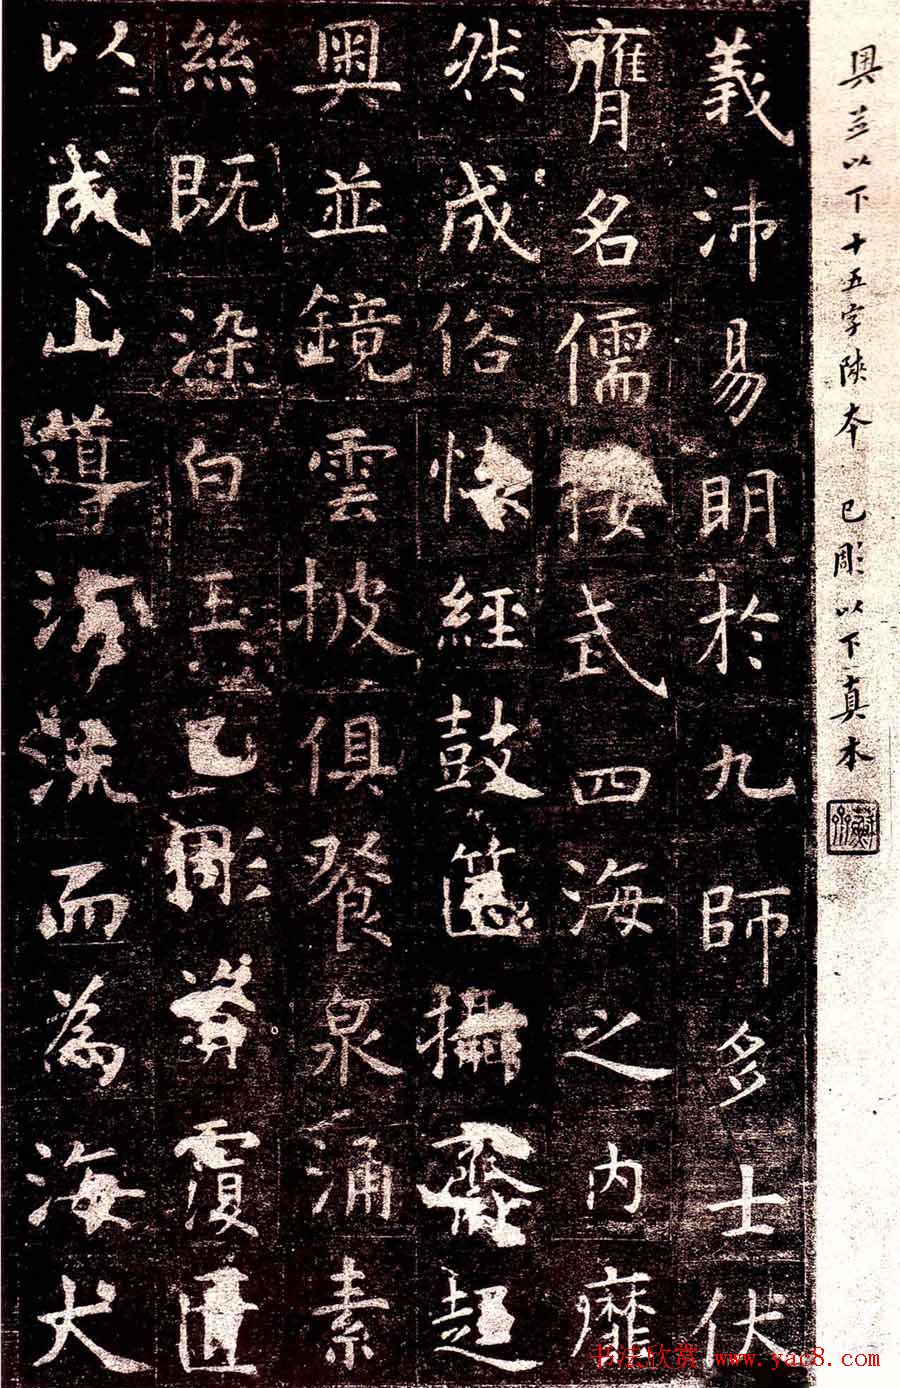 奥並以下十五字陝本 已彫以下真本
義沛易眀於九師多士伏
膺名儒接武四海之内靡
然成俗懷經鼓篋攝齊趍
奥並鏡雲披俱餐泉涌素
絲既染白玉已彫資覆匱
以成山導涓流而為海大
书法欣赏 www.yac8.com